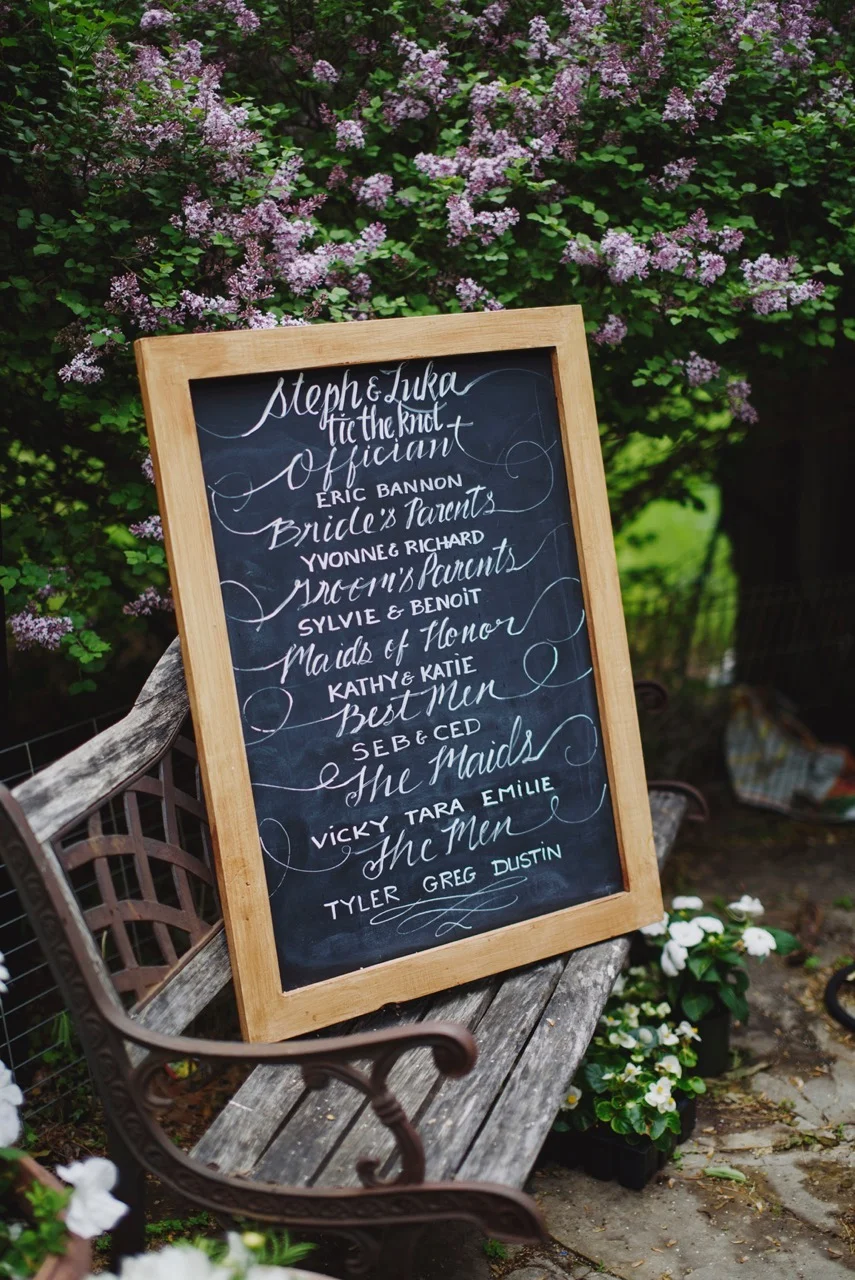 Steph & Luka
tie the knot
Officiant
ERIC BANNON
Bride's Parents
YVONNE & RICHARD
Groom's Parents
SYLVIE & BENOIT
Maids of Honor
KATHY & KATIE
Best Men
SEB & CED
The Maids
VICKY TARA EMILIE
The Men
TYLER GREG DUSTIN